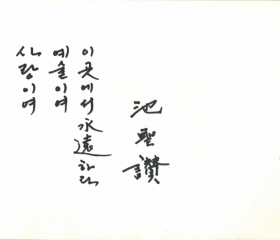 사랑이여
예술이여
이곳에서 永遠하라
池聖讚